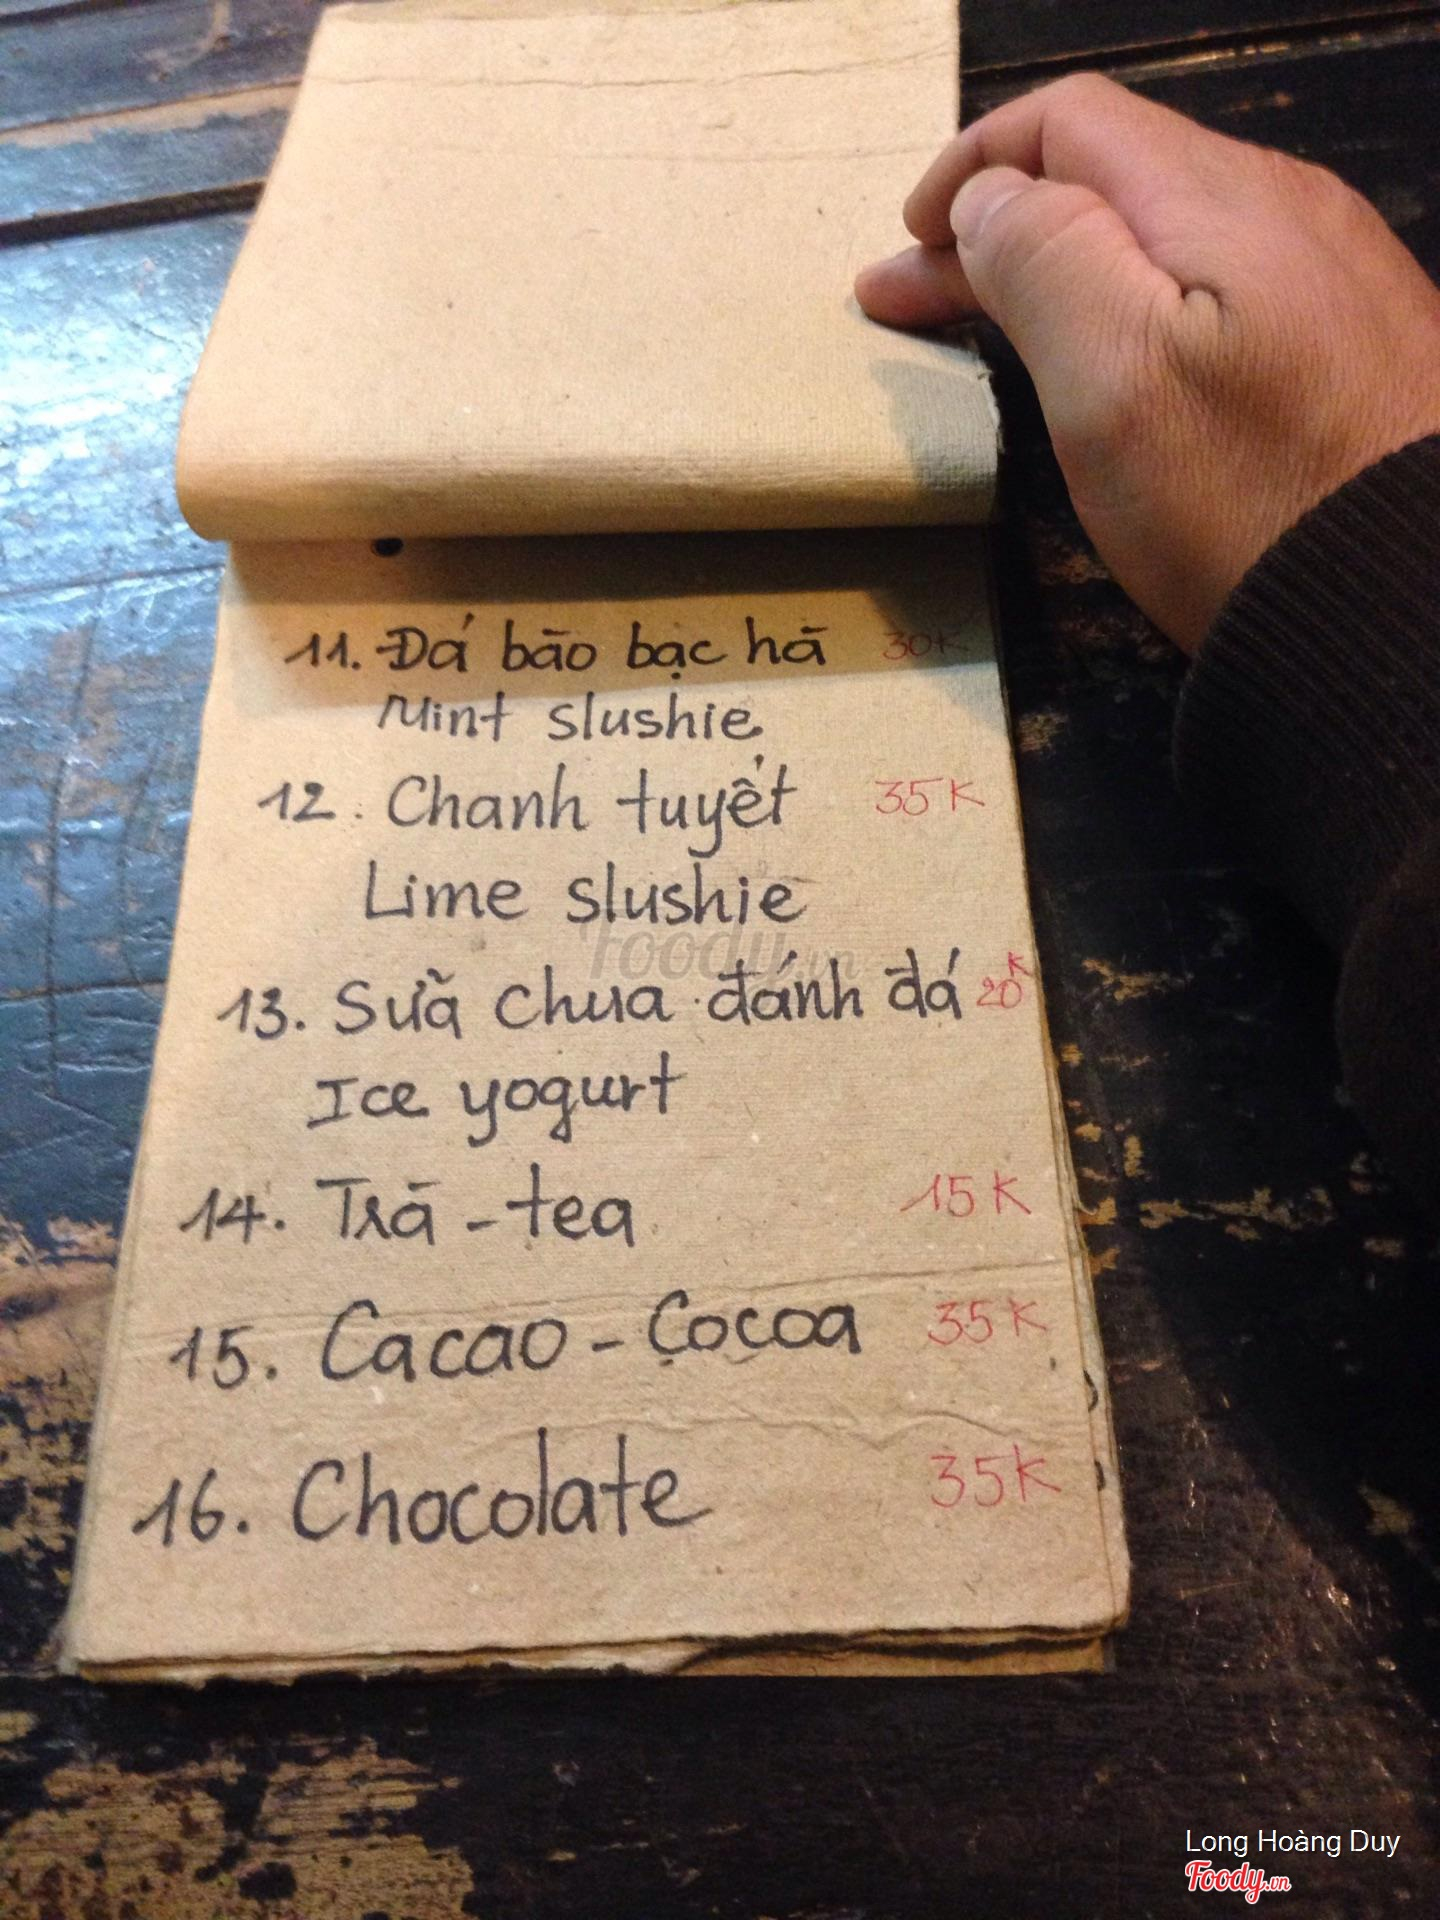 11. Đá bào bạc hà 30K
Mint slushie
12. Chanh tuyết 35K
Lime slushie
Foody.vn
13. Sữa chua đánh đá 20K
Ice yogurt
14. Trà - tea 15K
15. Cacao - Cocoa 35K
16. Chocolate 35K
Long Hoàng Duy
Foody.vn